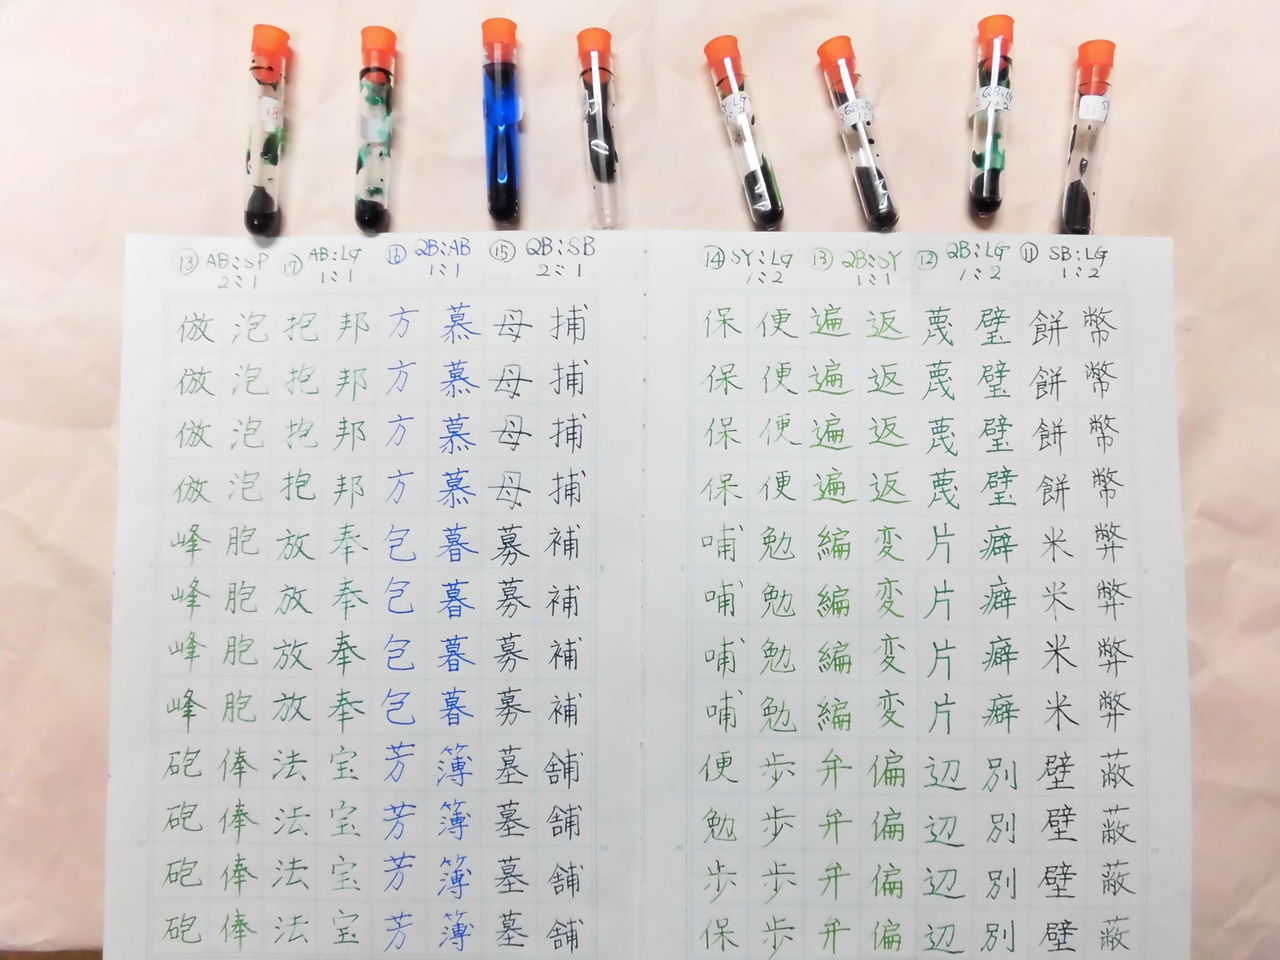 18
SY:LG
1:2
QB:SY
1:1
QB:LG
1:2
11
⑪ SB:LG
1:2
幣幣幣幣弊弊弊弊蔽蔽蔽蔽
餅餅餅餅米米米米壁壁壁壁
⑫ QB:LG
1:2
璧璧璧璧癖癖癖癖別別別別
蔑蔑蔑蔑片片片片辺辺辺辺
⑬ QB:SY
1:1
返返返返変変変変偏偏偏偏
遍遍遍遍編編編編弁弁弁弁
⑭ SY:LG
1:2
便便便便勉勉勉勉歩歩歩歩
保保保保哺哺哺哺便勉歩保
⑮ QB:SB
2:1
捕捕捕捕補補補補舗舗舗舗
母母母母募募募募墓墓墓墓
⑯ QB:AB
1:1
慕慕慕慕暮暮暮暮簿簿簿簿
方方方方包包包包芳芳芳芳
⑰ AB:LG
1:1
邦邦邦邦奉奉奉奉宝宝宝宝
抱抱抱抱放放放放法法法法
⑱ AB:SP
2:1
泡泡泡泡胞胞胞胞俸俸俸俸
倣倣倣倣峰峰峰峰砲砲砲砲